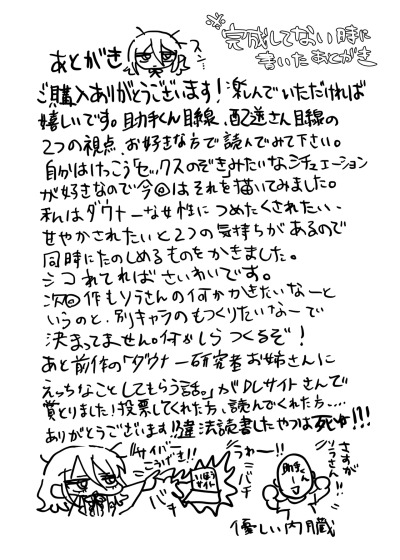 ※完成してない時に
書いたあとがき
あとがき
スン…
ご購入ありがとうございます!楽しんでいただければ
嬉しいです。助手くん目線、配送さん目線の
2つの視点、お好きな方で読んでみて下さい。
自分はけっこう「セックスのぞき」みたいなシチュエーション
が好きなので今回はそれを描いてみました。
私はダウナーな女性につめたくされたい、
甘やかされたいと2つの気持ちがあるので
同時にたのしめるものをかきました。
シコれてればさいわいです。
次回作もソラさんの何かかきたいなーと
いうのと、別キャラのもつくりたいなーで
決まってません。何かしらつくるぞ!
あと前作の「ダウナー研究者お姉さんに
えっちなことしてもらう話。」がDLサイトさんで
賞とりました!投票してくれた方、読んでくれた方…
ありがとうございます!!違法読書したやつは死ゆ!!!
サイバー
こうげき!!
バチ
いほう
サイト
うわー!!
バチ
助手くん
さすが
ソラさん!!
優しい内臓